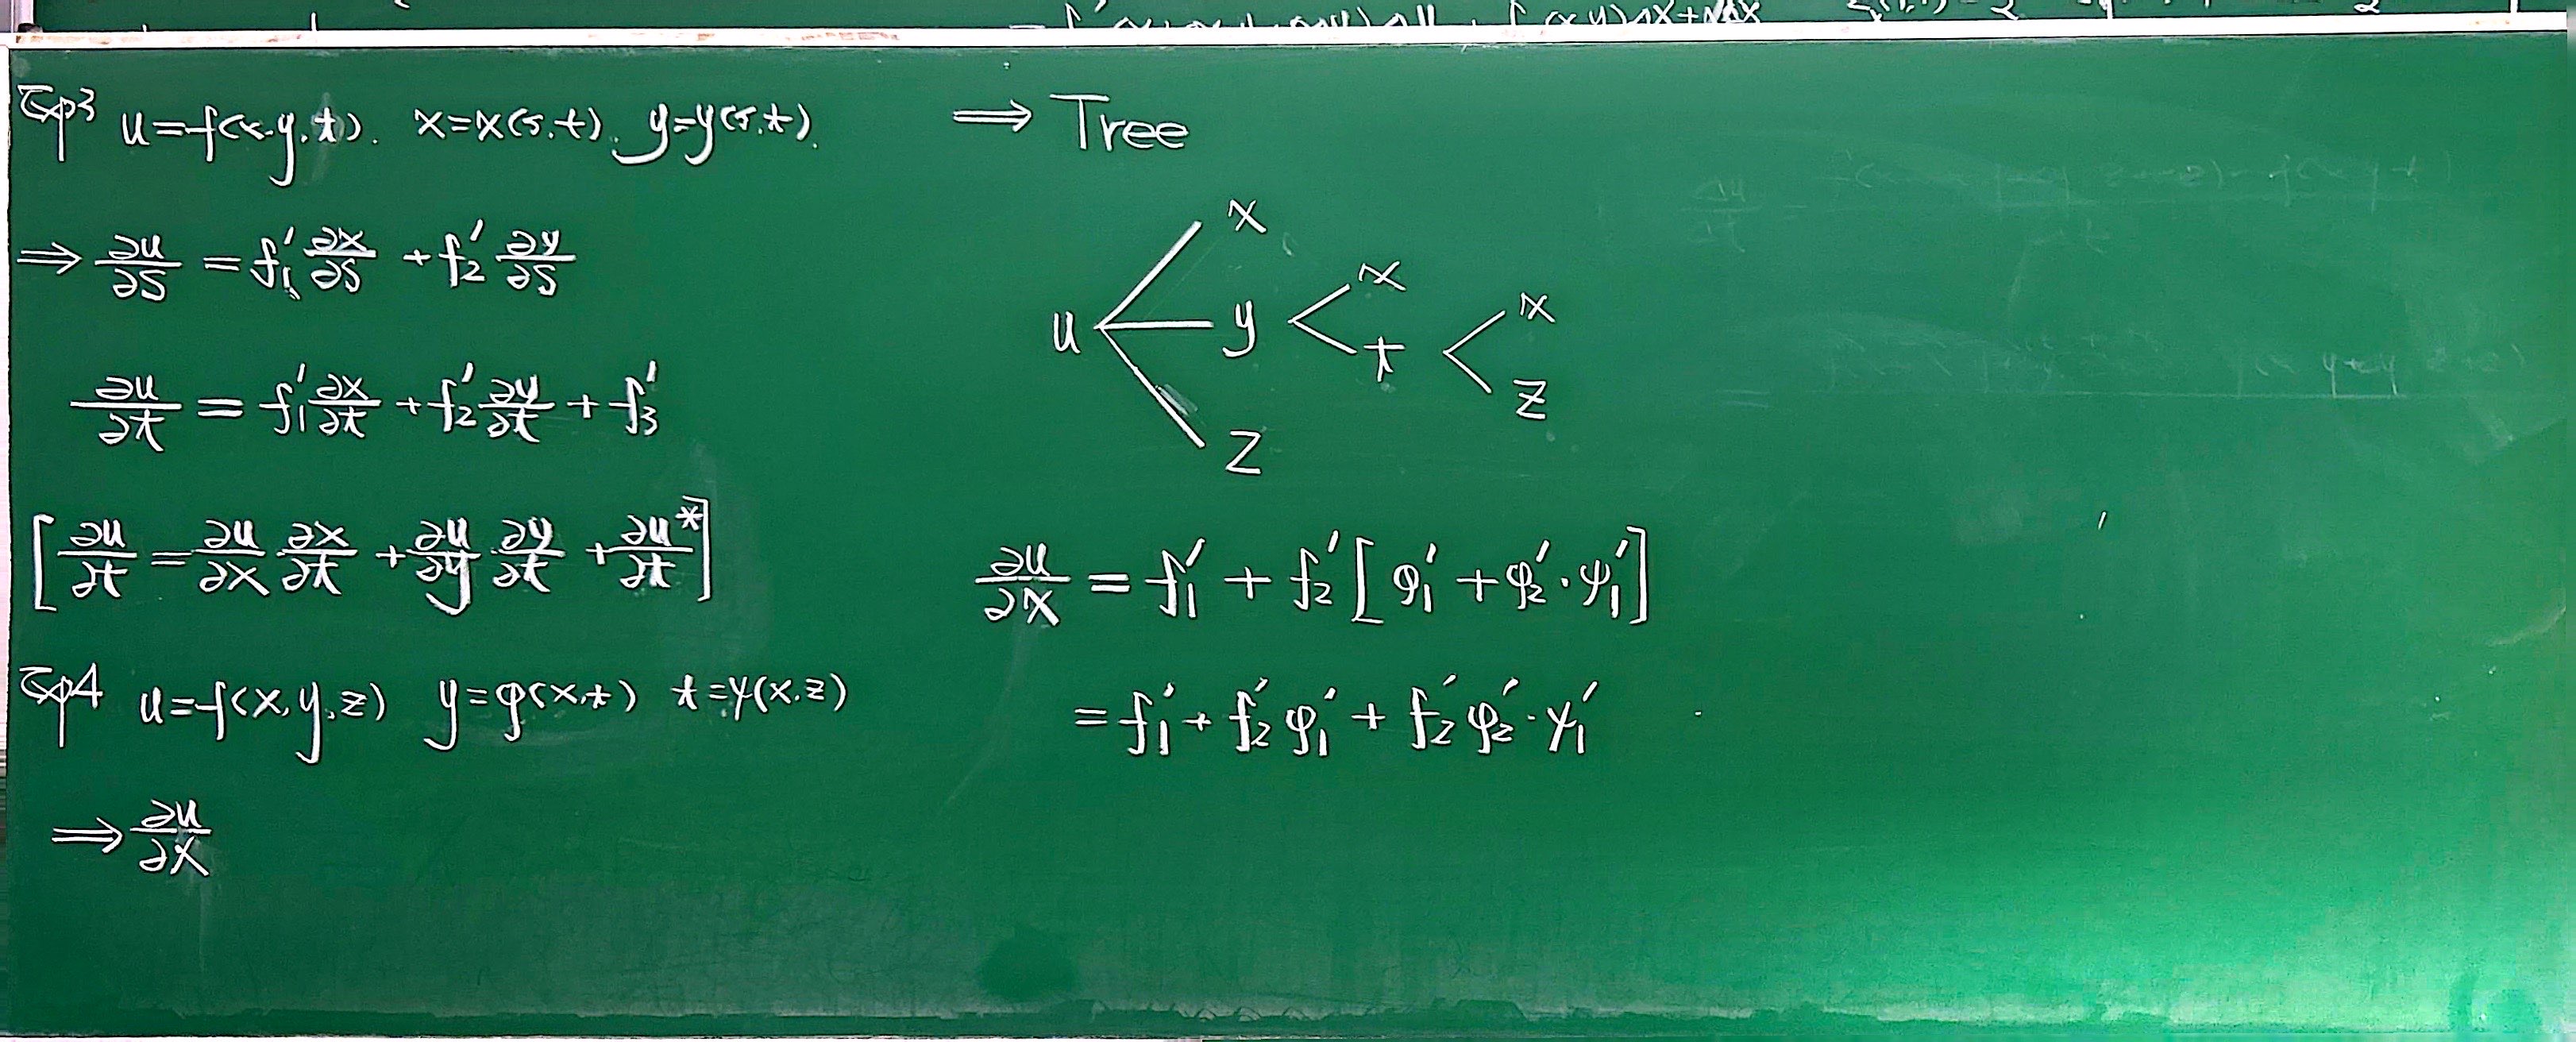 Exp3 u=f(x,y,t). x=x(s,t). y=y(s,t).
⇒ ∂u/∂s = f₁' ∂x/∂s + f₂' ∂y/∂s
∂u/∂t = f₁' ∂x/∂t + f₂' ∂y/∂t + f₃'
[∂u/∂t = ∂u/∂x ∂x/∂t + ∂u/∂y · ∂y/∂t + ∂u*/∂t]
Exp4 u=f(x,y,z) y=φ(x,t) t=ψ(x,z)
⇒ ∂u/∂x
⇒ Tree
x
x
x
u y
t
z
z
∂u/∂x = f₁' + f₂' [φ₁' + φ₂' · ψ₁']
= f₁' + f₂' φ₁' + f₂' φ₂' · ψ₁'